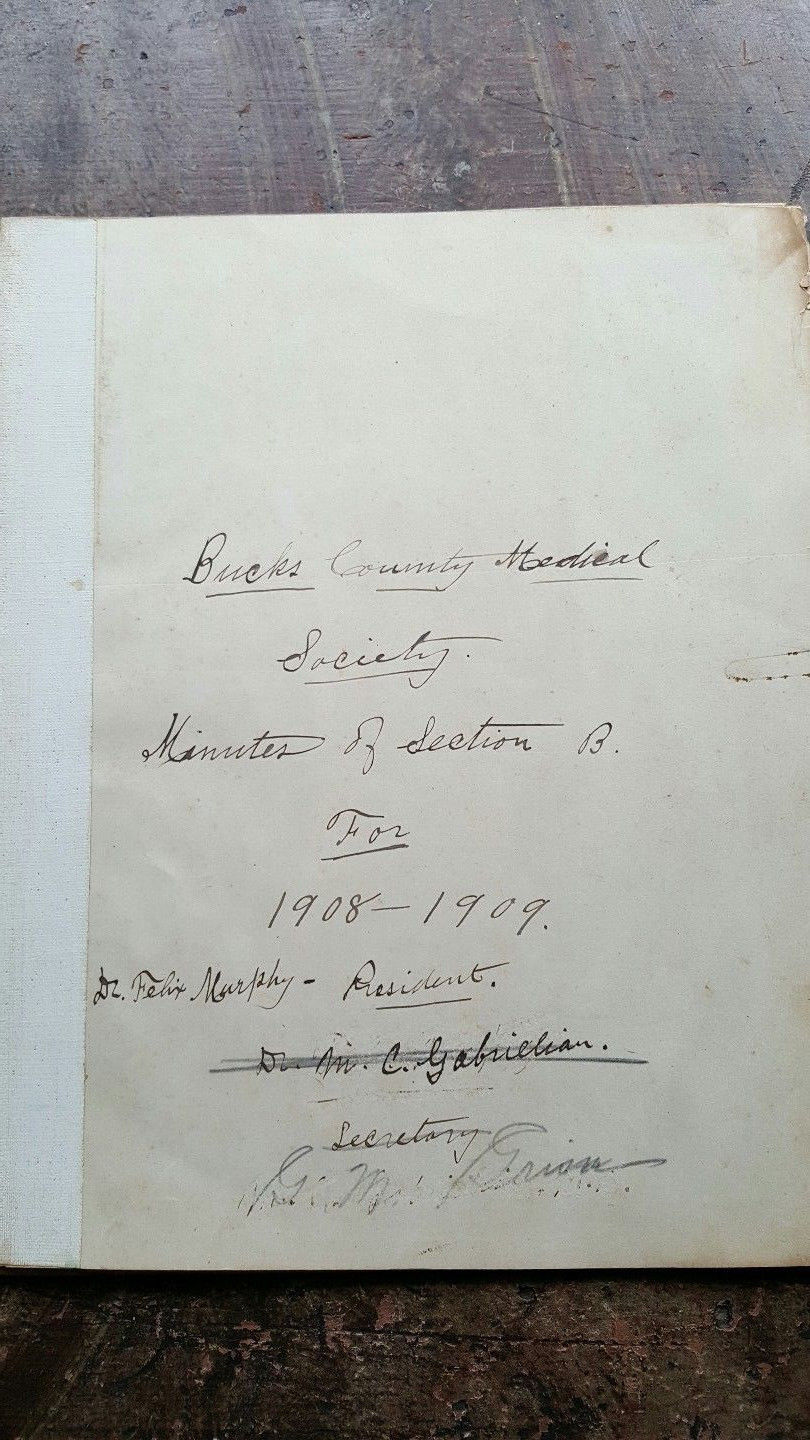 Bucks County Medical
Society.
Minutes of Section B.
For
1908–1909.
Dr. Felix Murphy – President.
Dr. M. C. Gabrielian.
Secretary